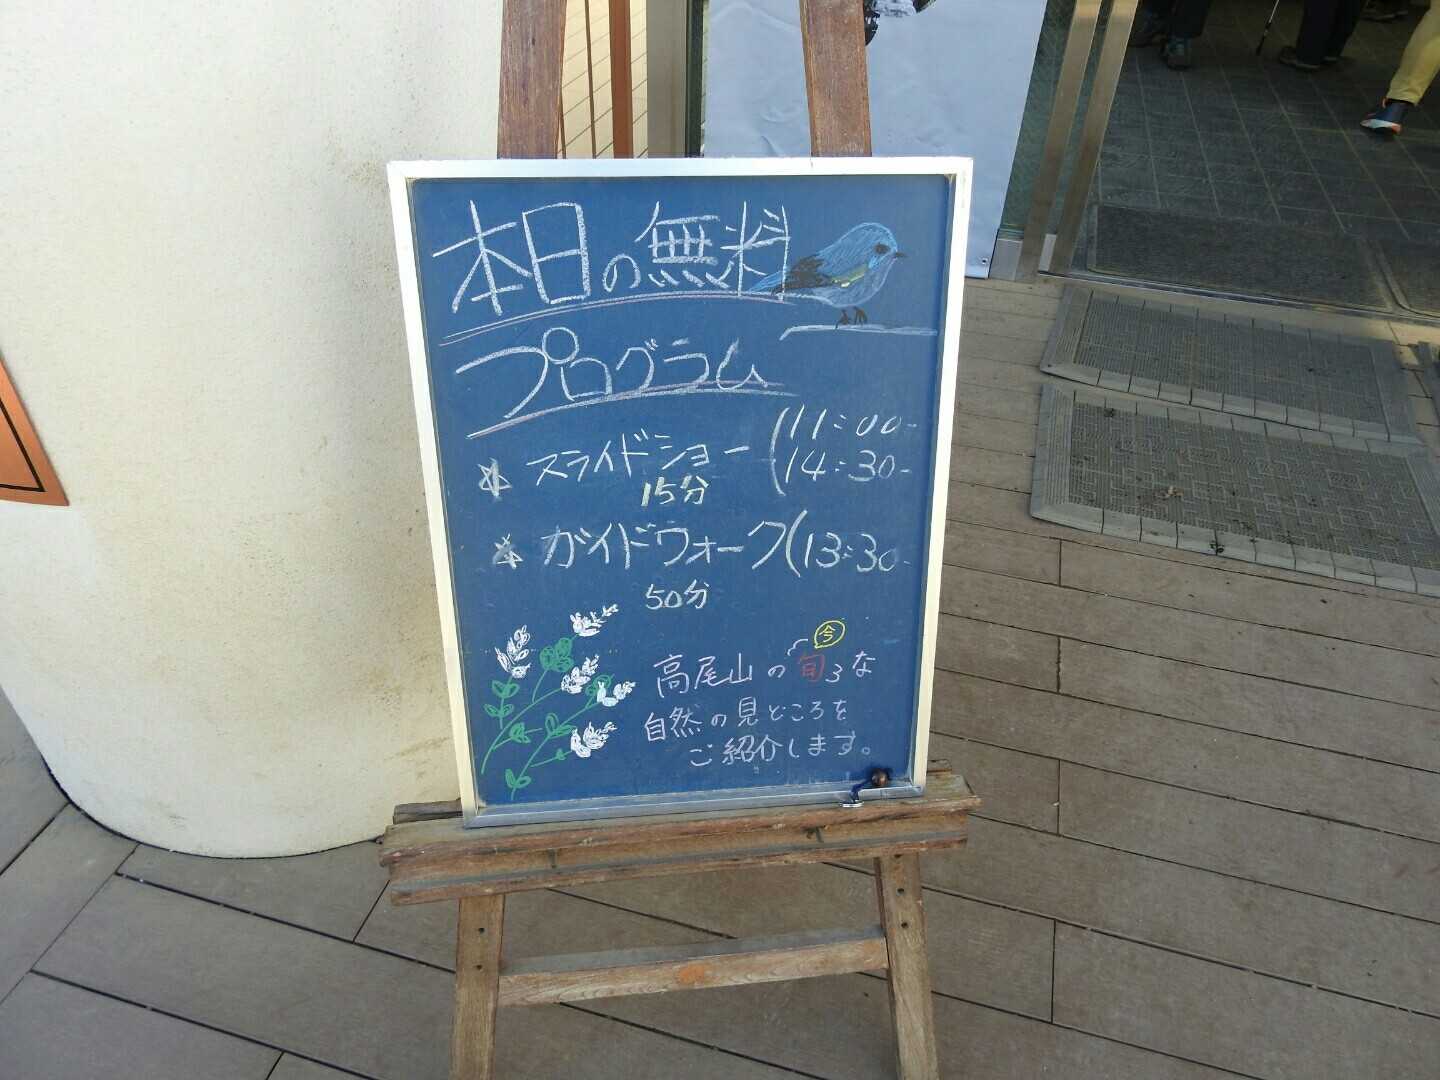 本日の無料
プログラム
☆ スライドショー (11:00-
15分 14:30-
☆ ガイドウォーク(13:30-
50分
今
高尾山の旬な
自然の見どころを
ご紹介します。